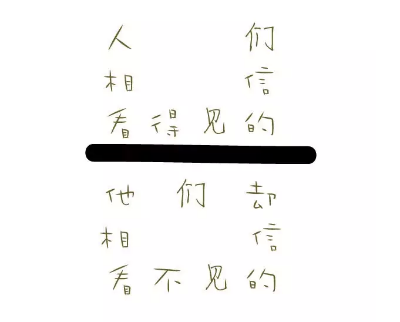 人们
相信
看得见的
他们却
相信
看不见的